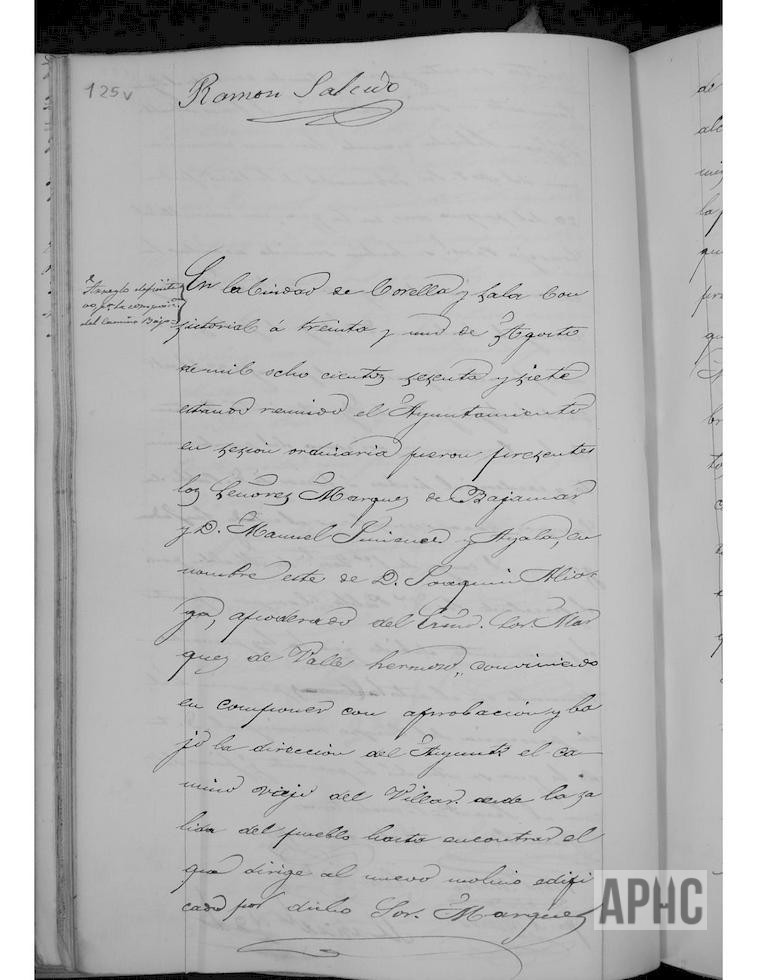 125v
Ramon Salcedo
Arreglo definiti
vo para la composicion
del Camino Bajo
En la Ciudad de Corella y Sala Con
sistorial á treinta y uno de Agosto
de mil ocho cientos sesenta y siete
estando reunido el Ayuntamiento
en sesion ordinaria fueron presentes
los Señores Marques de Bajamar
y D. Manuel Jimenez y Ayala, en
nombre este de D. Joaquin Alior
ga, apoderado del Excmo. Sor. Mar
ques de Valle hermoso, conviniendo
en componer con aprobacion y ba
jo la direccion del Ayunto. el ca-
mino viejo del Villar desde la sa
lida del pueblo hasta encontrar el
que dirige al nuevo molino edifi
cado por dicho Sor. Marques
APHC